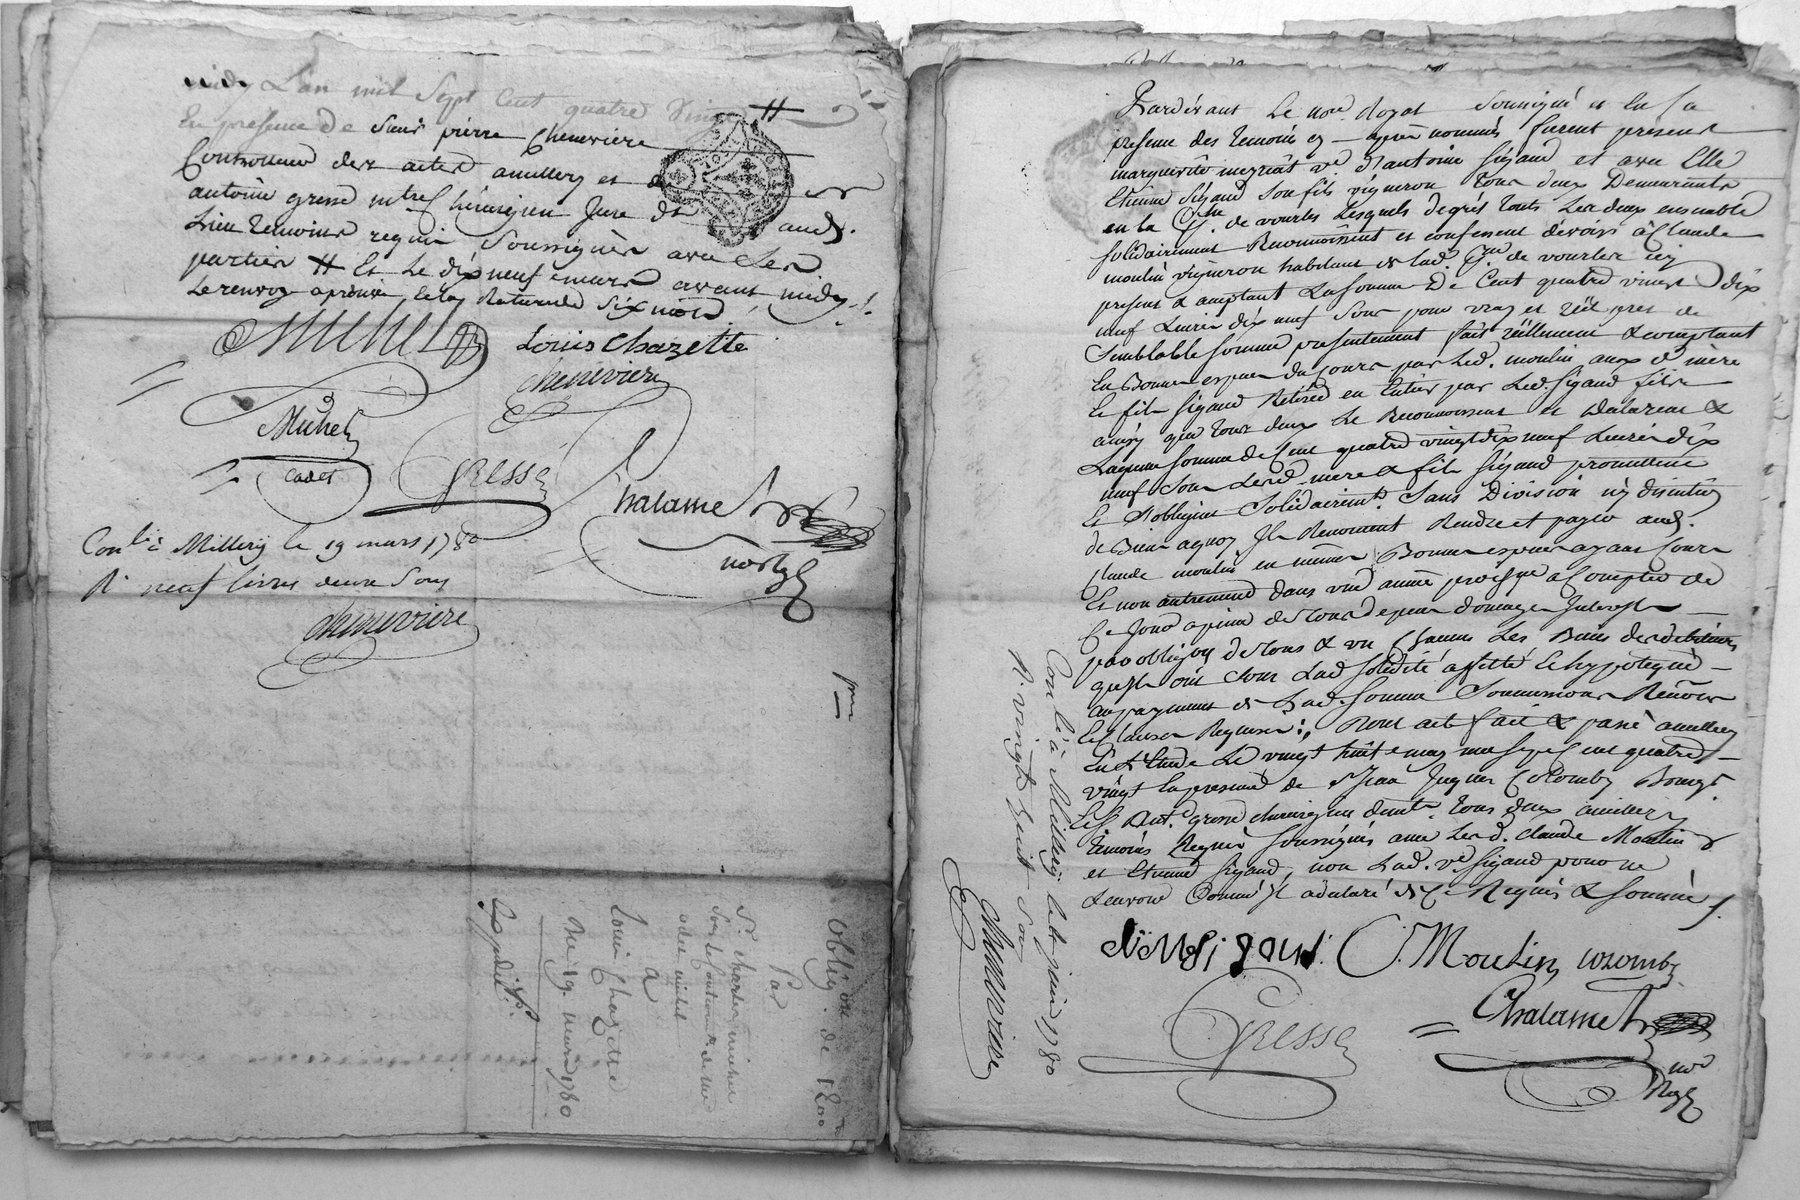 midy L'an mil Sept Cent quatre Vingt #
En presence de Sieur pierre Cheneviere
Controlleur des actes amillery et de
antoine gresse mtre Chirurgien Jure dt aud.
Lieu temoins requis Soussignés avec Les
parties # Et Le dix neuf mars avant midy
Le renvoy aprouvé
Michel Louis Chazette
Cheneviere
Michel
Cadet
Gresse
Chalamet
notre
Conlé à Millery le 19 mars 1780
R. neuf livres douze Sous
Cheneviere
Oblig.on de 1200
Par
Sr. Charles michel
Sous le Cautionnt de
michel
a
Louis Chazette
Du 19. mars 1780
Expédié
Pardevant Le Nore Royal Soussigné et En la
presence des temoins cy apres nommés furent presens
marguerite meyriat ve. d'antoine Sigaud et avec Elle
Etienne Sigaud Son fils vigneron tous deux Demeurants
en la de vourles Lesquels de gré touts Les deux ensemble
Solidairement Reconnoissent et confessent devoir à Claude
moulin vigneron habitant de Lad. de vourles icy
present & aceptant La Somme De Cent quatre vingt dix
neuf Livres dix neuf Sous pour vray et réel pret de
Semblable Somme presentement fait réellement & comptant
En Bonnes espèces du Cours par Led. moulin auxd mère
& fils Sigaud Retirée en Entier par Led. Sigaud fils
ainsy que tous deux Le Reconnoissent et Declarent &
Laquelle Somme de Cent quatre vingt dix neuf Livres dix
neuf Sous Lesd. mere & fils Sigaud promettent
Et S'obligent Solidairemt. Sans Division ny discution
de Biens aquoy Ils Renoncent Rendre et payer aud.
Claude moulin en mêmes Bonnes espèces ayant Cours
Et non autrement dans une année prochne a Compter de
Ce Jour a peine de tous depens domages Interests
par obligon de tous & un Chacuns Les Biens desd debiteurs
qu'ils ont Sous Lad Solidité affecté & hypotequé
au payement de Lad. Somme Soumissions Renons
& Clauses Requises; Dont acte fait & passé amillery
En Etude Le vingt huit may mil Sept Cent quatre
vingt En presence de Sr Jean Jaques Colomby Bourgs.
& Sr Ant.e gresse chirurgien demts. tous deux amillery
temoins Requis Soussignés avec Lesd. Claude Moulin
et Etienne Sigaud, non Lad. ve Sigaud pour ne
Lavoir Comme Il a declaré de Ce Requis & Sommé
Sigaud. C. Moulin Colomby
Gresse Chalamet
nore
Roy
Conlé à Millery le juin 1780
R. vingt huit Sous
Cheneviere